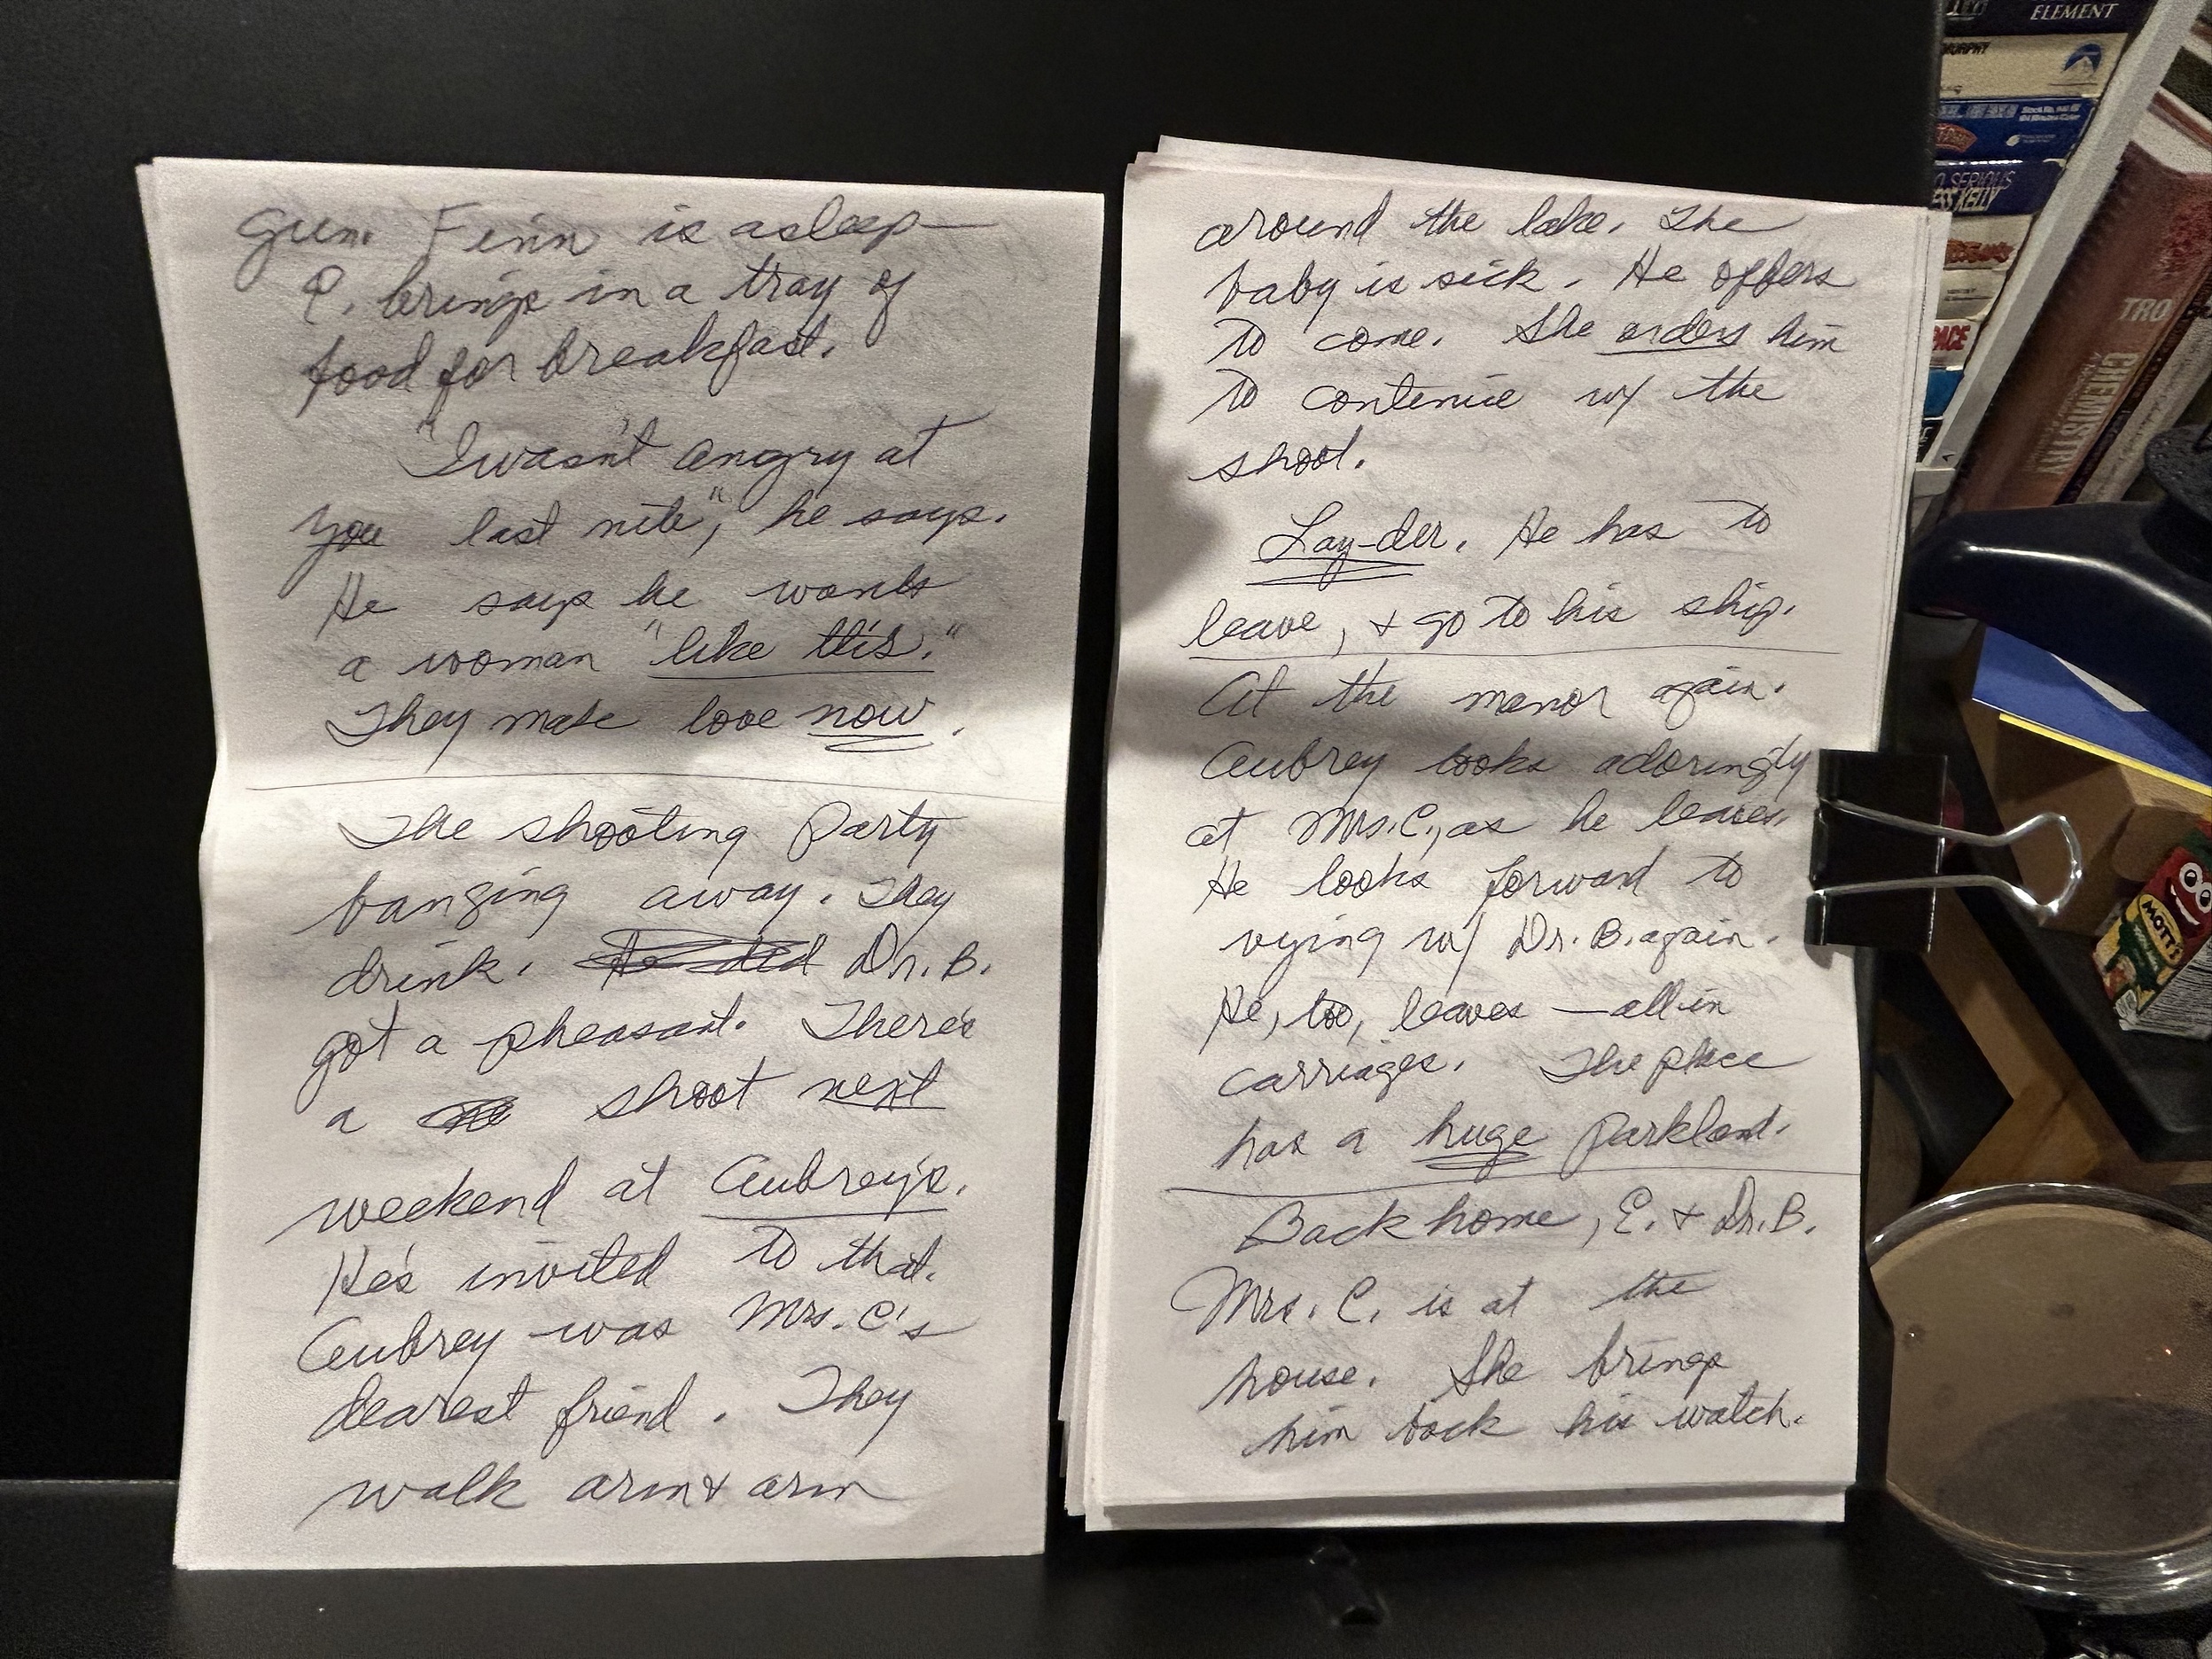 gun. Finn is asleep—
E. brings in a tray of
food for breakfast.
"I wasn't angry at
you last nite", he says.
He says he wants
a woman "like this."
They make love now.
The shooting party
banging away. They
drink. Dr. B.
got a pheasant. There's
a shoot next
weekend at Aubrey's.
He's invited to that.
Aubrey was Mrs. C's
dearest friend. They
walk arm & arm
around the lake. The
baby is sick. He offers
to come. She orders him
to continue w/ the
shoot.
Lay-der. He has to
leave, & go to his ship.
At the manor again.
Aubrey looks adoringly
at Mrs. C., as he leaves.
He looks forward to
vying w/ Dr. B. again.
He, too, leaves — all in
carriages. The place
has a huge parkland.
Back home, E. & Dr. B.
Mrs. C. is at the
house. She brings
him back his watch.
ELEMENT
MURPHY
SERIOUS
KELLY
PACE
TRO
CHEMISTRY
MOTT'S